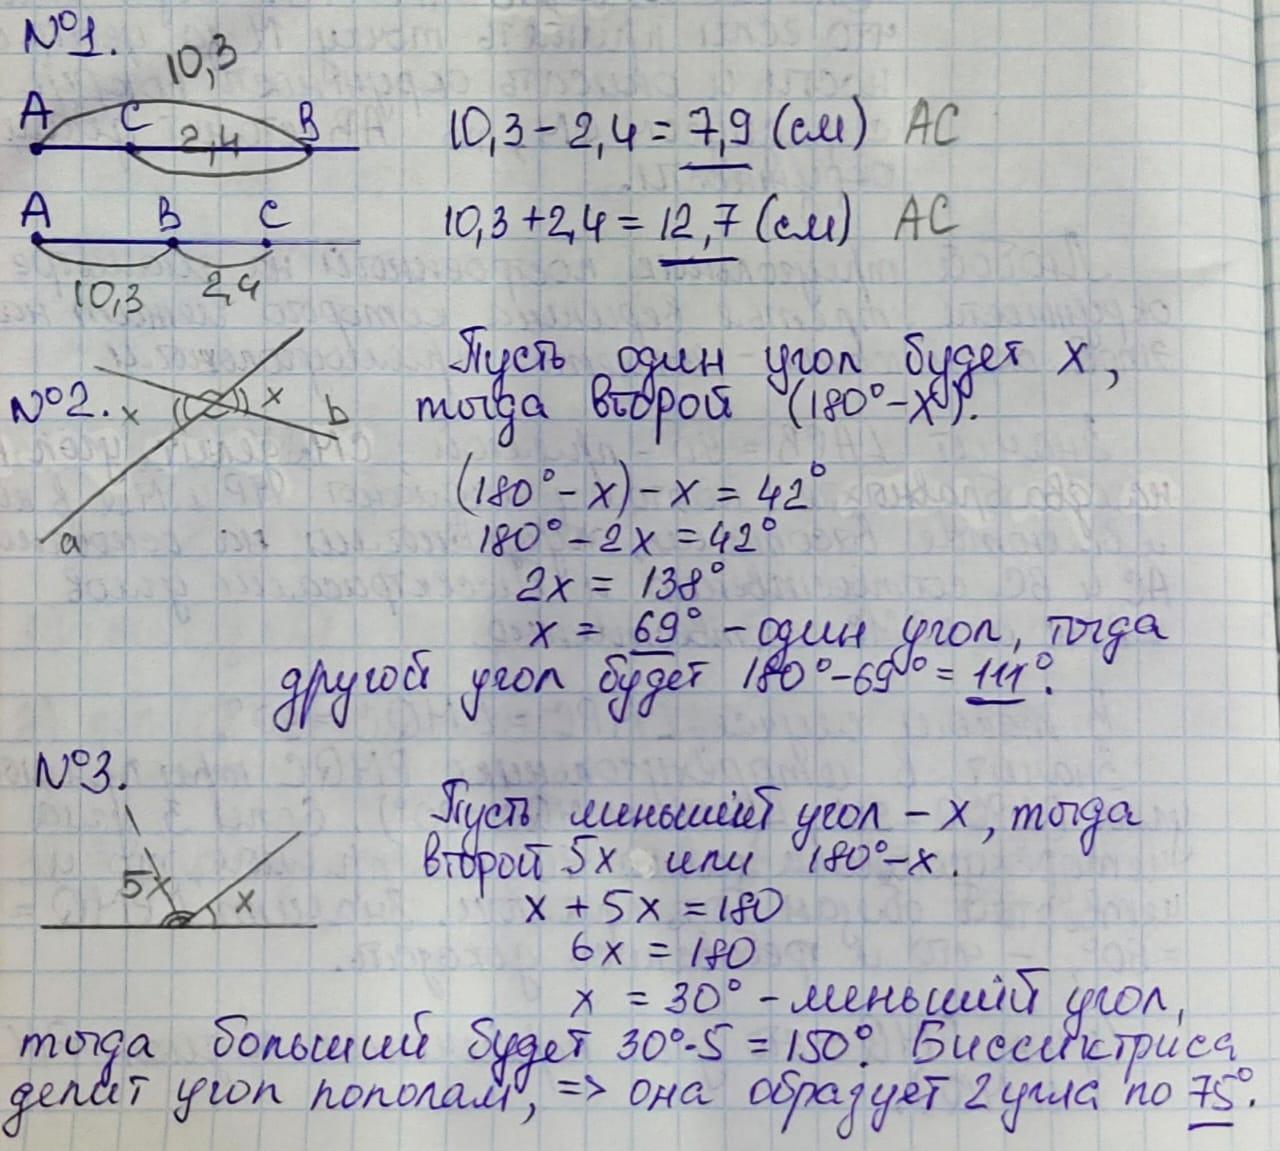 №1.
10,3
A C 2,4 B
10,3 - 2,4 = 7,9 (см) AC
A B C
10,3 + 2,4 = 12,7 (см) AC
10,3 2,4
№2. x x b
a
Пусть один угол будет x,
тогда второй (180° - x).
(180° - x) - x = 42°
180° - 2x = 42°
2x = 138°
x = 69° - один угол, тогда
другой угол будет 180° - 69° = 111°.
№3.
5x x
Пусть меньший угол - x, тогда
второй 5x или 180° - x.
x + 5x = 180
6x = 180
x = 30° - меньший угол,
тогда больший будет 30°·5 = 150°. Биссиктриса
делит угол пополам, => она образует 2 угла по 75°.